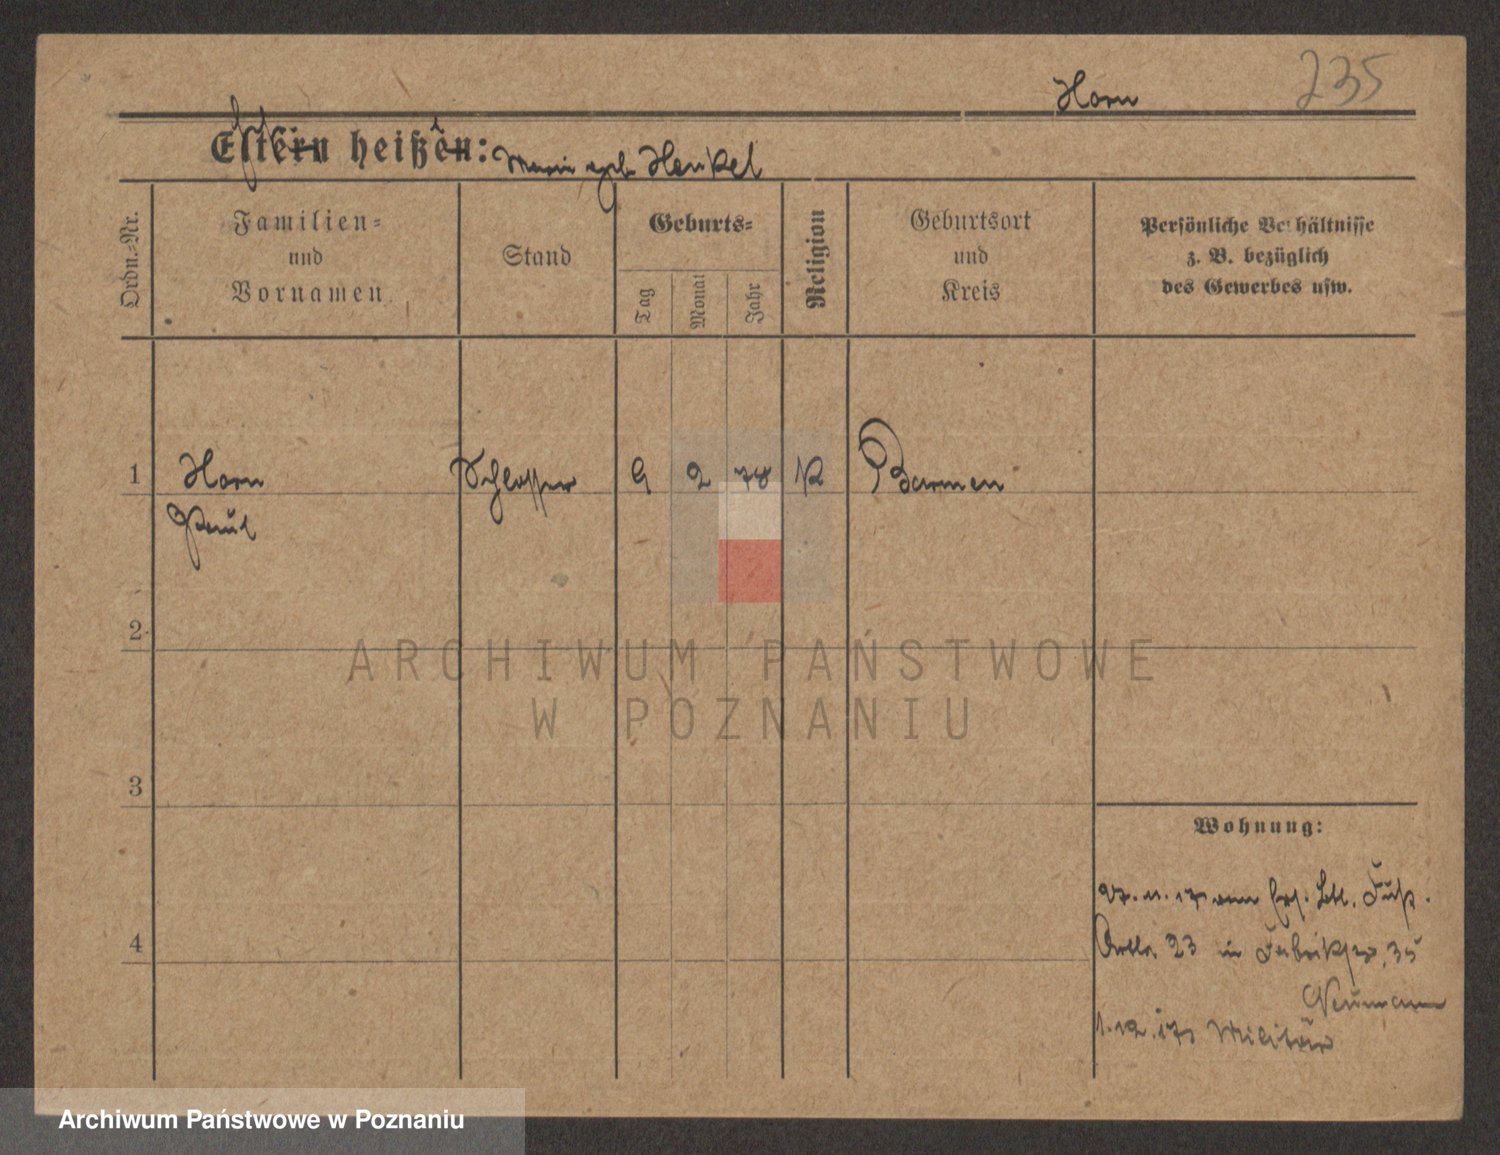 Horn 235
Eltern heißen: Maria geb. Henkel
Ordn.-Nr.
Familien-
und
Vornamen
Stand
Geburts-
Tag
Monat
Jahr
Religion
Geburtsort
und
Kreis
Persönliche Verhältnisse
z. B. bezüglich
des Gewerbes usw.
1 Horn Schlosser 9 2 78 K Barmen
Paul
2
3
4
Wohnung:
27.11.17 vom Ers. Btl. Fuß.
Artl. 23 in Fabrikstr. 35
Neumann
1.12.17 Militär
ARCHIWUM PAŃSTWOWE
W POZNANIU
Archiwum Państwowe w Poznaniu